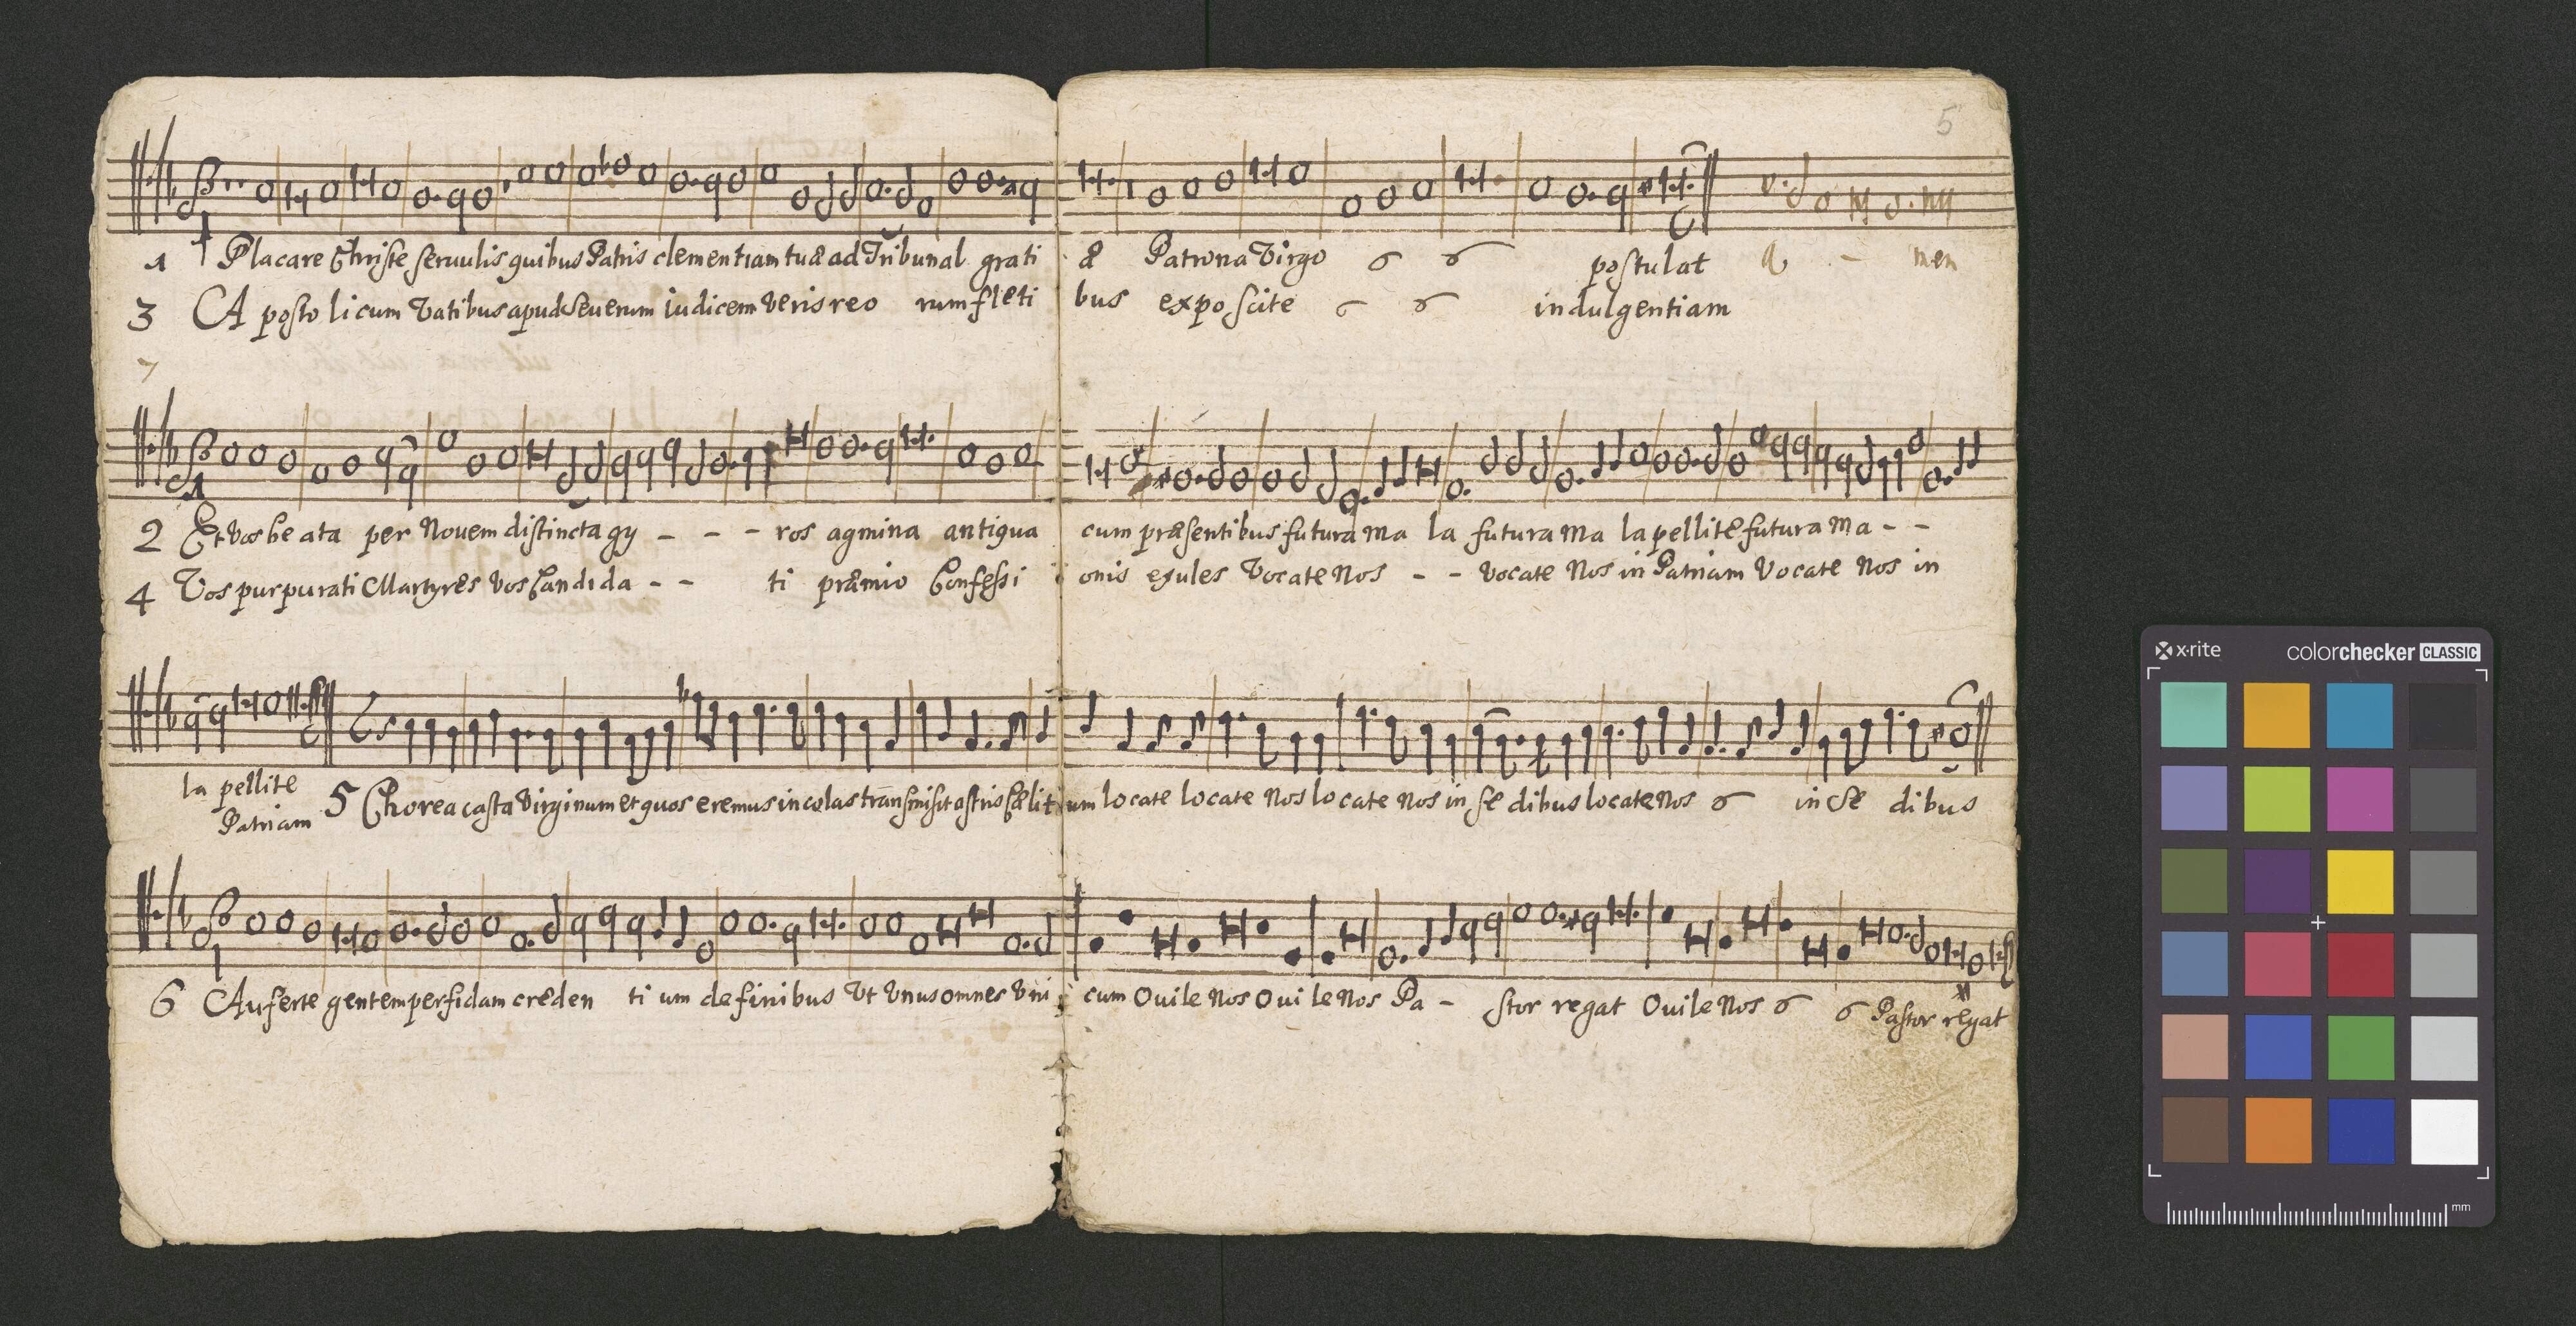 5
1 Placare Christe seruulis quibus Patris clementiam tuæ ad Tribunal grati
æ Patrona Virgo postulat A - men
3 Apostolicum Vatibus apud Seuerum iudicem veris reo rum fleti
bus exposcite indulgentiam
7
2 Et vos beata per Nouem distincta gy - - - ros agmina antiqua
cum præsentibus futura Ma la futura Ma la pellite futura Ma - -
4 Vos purpurati Martyres vos Candida - - ti præmio Confessi
onis exules Vocate Nos - - vocate Nos in Patriam Vocate Nos in
la pellite
Patriam
5 Chorea casta Virginum et quos eremus incolas transmisit astris Cælit
um locate locate Nos locate Nos in se dibus locate Nos in Se dibus
6 Auferte gentem perfidam creden ti um de finibus Vt Vnus omnes Vni
cum Ouile Nos Oui le Nos Pa - stor regat Ouile Nos Pastor regat
x-rite
colorchecker CLASSIC
mm